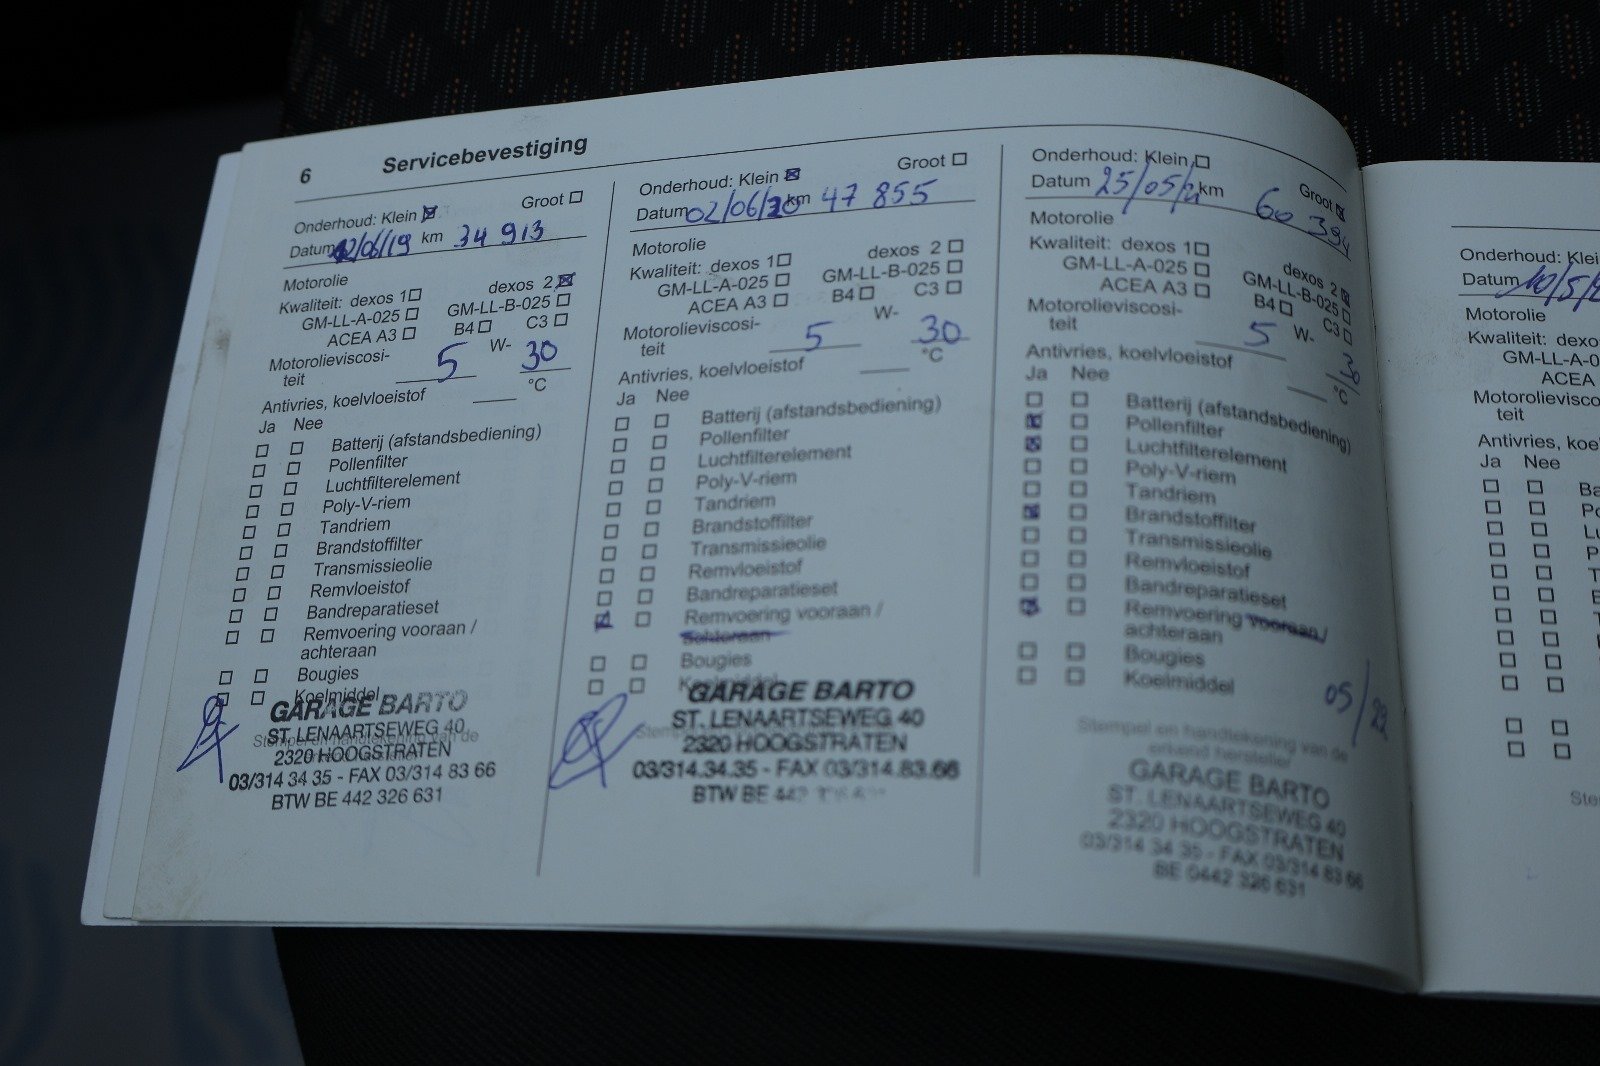 6 Servicebevestiging
Onderhoud: Klein Groot
Datum 12/06/19 km 34 913
Motorolie
Kwaliteit: dexos 1 dexos 2
GM-LL-A-025 GM-LL-B-025
ACEA A3 B4 C3
Motorolieviscosi-
teit 5 W- 30
Antivries, koelvloeistof °C
Ja Nee
Batterij (afstandsbediening)
Pollenfilter
Luchtfilterelement
Poly-V-riem
Tandriem
Brandstoffilter
Transmissieolie
Remvloeistof
Bandreparatieset
Remvoering vooraan /
achteraan
Bougies
Koelmiddel
Stempel en handtekening van de
GARAGE BARTO
ST. LENAARTSEWEG 40
2320 HOOGSTRATEN
03/314 34 35 - FAX 03/314 83 66
BTW BE 442 326 631
Onderhoud: Klein Groot
Datum 02/06/20 km 47 855
Motorolie
Kwaliteit: dexos 1 dexos 2
GM-LL-A-025 GM-LL-B-025
ACEA A3 B4 C3
Motorolieviscosi-
teit 5 W- 30
Antivries, koelvloeistof °C
Ja Nee
Batterij (afstandsbediening)
Pollenfilter
Luchtfilterelement
Poly-V-riem
Tandriem
Brandstoffilter
Transmissieolie
Remvloeistof
Bandreparatieset
Remvoering vooraan /
achteraan
Bougies
Koelmiddel
GARAGE BARTO
ST. LENAARTSEWEG 40
2320 HOOGSTRATEN
03/314.34.35 - FAX 03/314.83.66
BTW BE 442
Onderhoud: Klein Groot
Datum 25/05/21 km 60 394
Motorolie
Kwaliteit: dexos 1 dexos 2
GM-LL-A-025 GM-LL-B-025
ACEA A3 B4 C3
Motorolieviscosi-
teit 5 W- 30
Antivries, koelvloeistof °C
Ja Nee
Batterij (afstandsbediening)
Pollenfilter
Luchtfilterelement
Poly-V-riem
Tandriem
Brandstoffilter
Transmissieolie
Remvloeistof
Bandreparatieset
Remvoering vooraan /
achteraan
Bougies
Koelmiddel
05/22
Stempel en handtekening van de
erkend hersteller
GARAGE BARTO
ST. LENAARTSEWEG 40
2320 HOOGSTRATEN
03/314 34 35 - FAX 03/314 83 66
BE 0442 326 631
Onderhoud: Klei
Datum 10/5/2
Motorolie
Kwaliteit: dexo
GM-LL-A-0
ACEA
Motorolievisco
teit
Antivries, koe
Ja Nee
Ba
Po
Lu
P
T